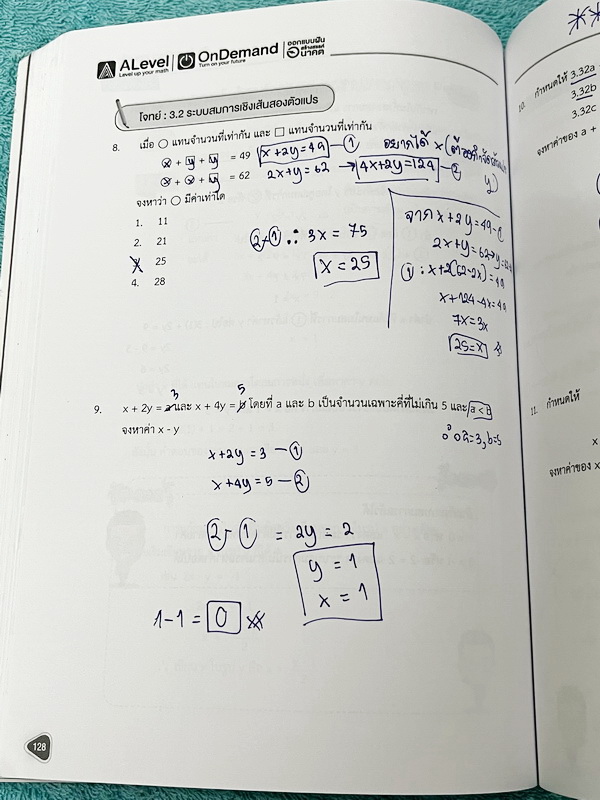 ALevel OnDemand ออกแบบฝัน สร้างสรรค์ อนาคต
Level up your math Turn on your future
โจทย์ : 3.2 ระบบสมการเชิงเส้นสองตัวแปร
8. เมื่อ ○ แทนจำนวนที่เท่ากัน และ □ แทนจำนวนที่เท่ากัน
x + y + y = 49 x+2y=49 - ①
อยากได้ x
x + x + y = 62 2x+y=62 → 4x+2y=124 - ②
จงหาว่า ○ มีค่าเท่าใด
1. 11
2. 21
3. 25
4. 28
②-① ∴ 3x = 75
x = 25
จาก x+2y=49 - ①
2x+y=62
①: x+2(62-2x)=49
x+124-4x=49
75=3x
25=x
9. x + 2y = a และ x + 4y = b โดยที่ a และ b เป็นจำนวนเฉพาะคี่ที่ไม่เกิน 5 และ a < b
3 5
จงหาค่า x - y
∴ a=3, b=5
x+2y = 3 - ①
x+4y = 5 - ②
② - ① = 2y = 2
y = 1
x = 1
1-1 = 0
128
10. กำหนดให้ 3.32a
3.32b
3.32c
จงหาค่าของ a +
11. กำหนดให้
x
จงหาค่าของ x